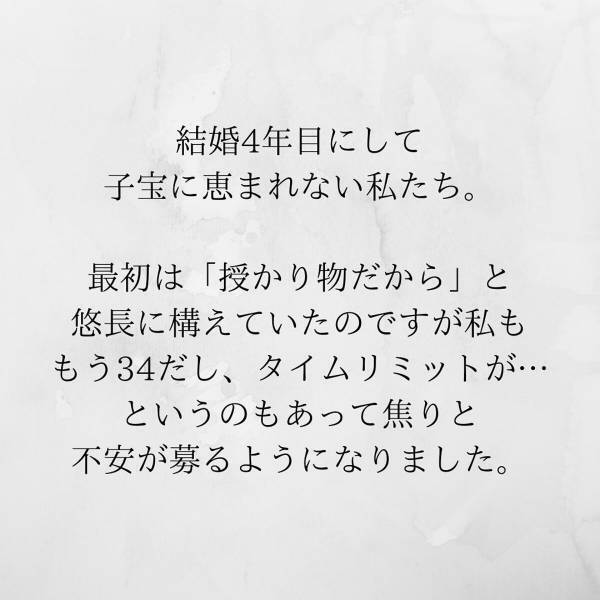 結婚4年目にして
子宝に恵まれない私たち。
最初は「授かり物だから」と
悠長に構えていたのですが私も
もう34だし、タイムリミットが…
というのもあって焦りと
不安が募るようになりました。